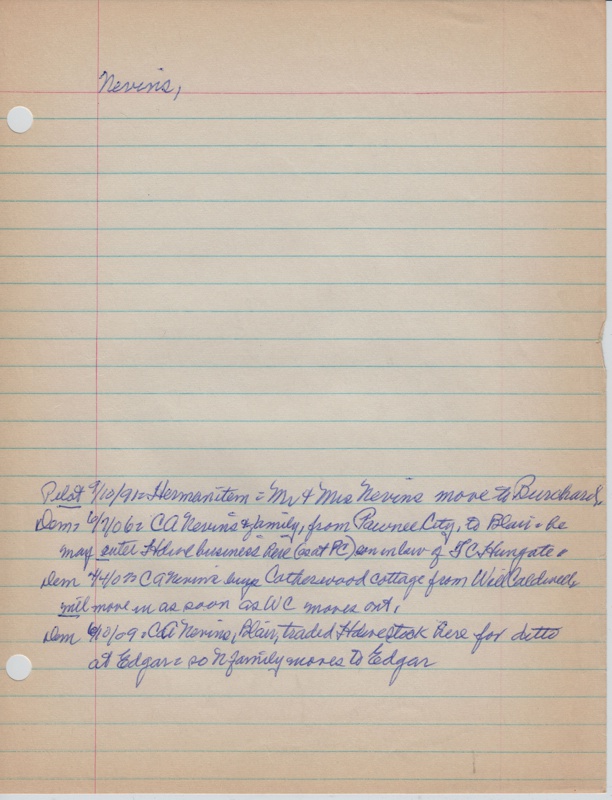 Nevins,
Pilot 9/10/91= Herman item = Mr & Mrs Nevins move to Burchard,
Dem= 6/7/06= CA Nevins & family, from Pawnee City, to Blair = he
may enter Hdwe business here (as at PC) son in law of T C Hungate =
Dem CA Nevins buys Catherwood cottage from Will Caldwell,
will move in as soon as WC moves out,
Dem /10/09= CA Nevins, Blair, traded Hdwe stock here for ditto
at Edgar = so N family moves to Edgar